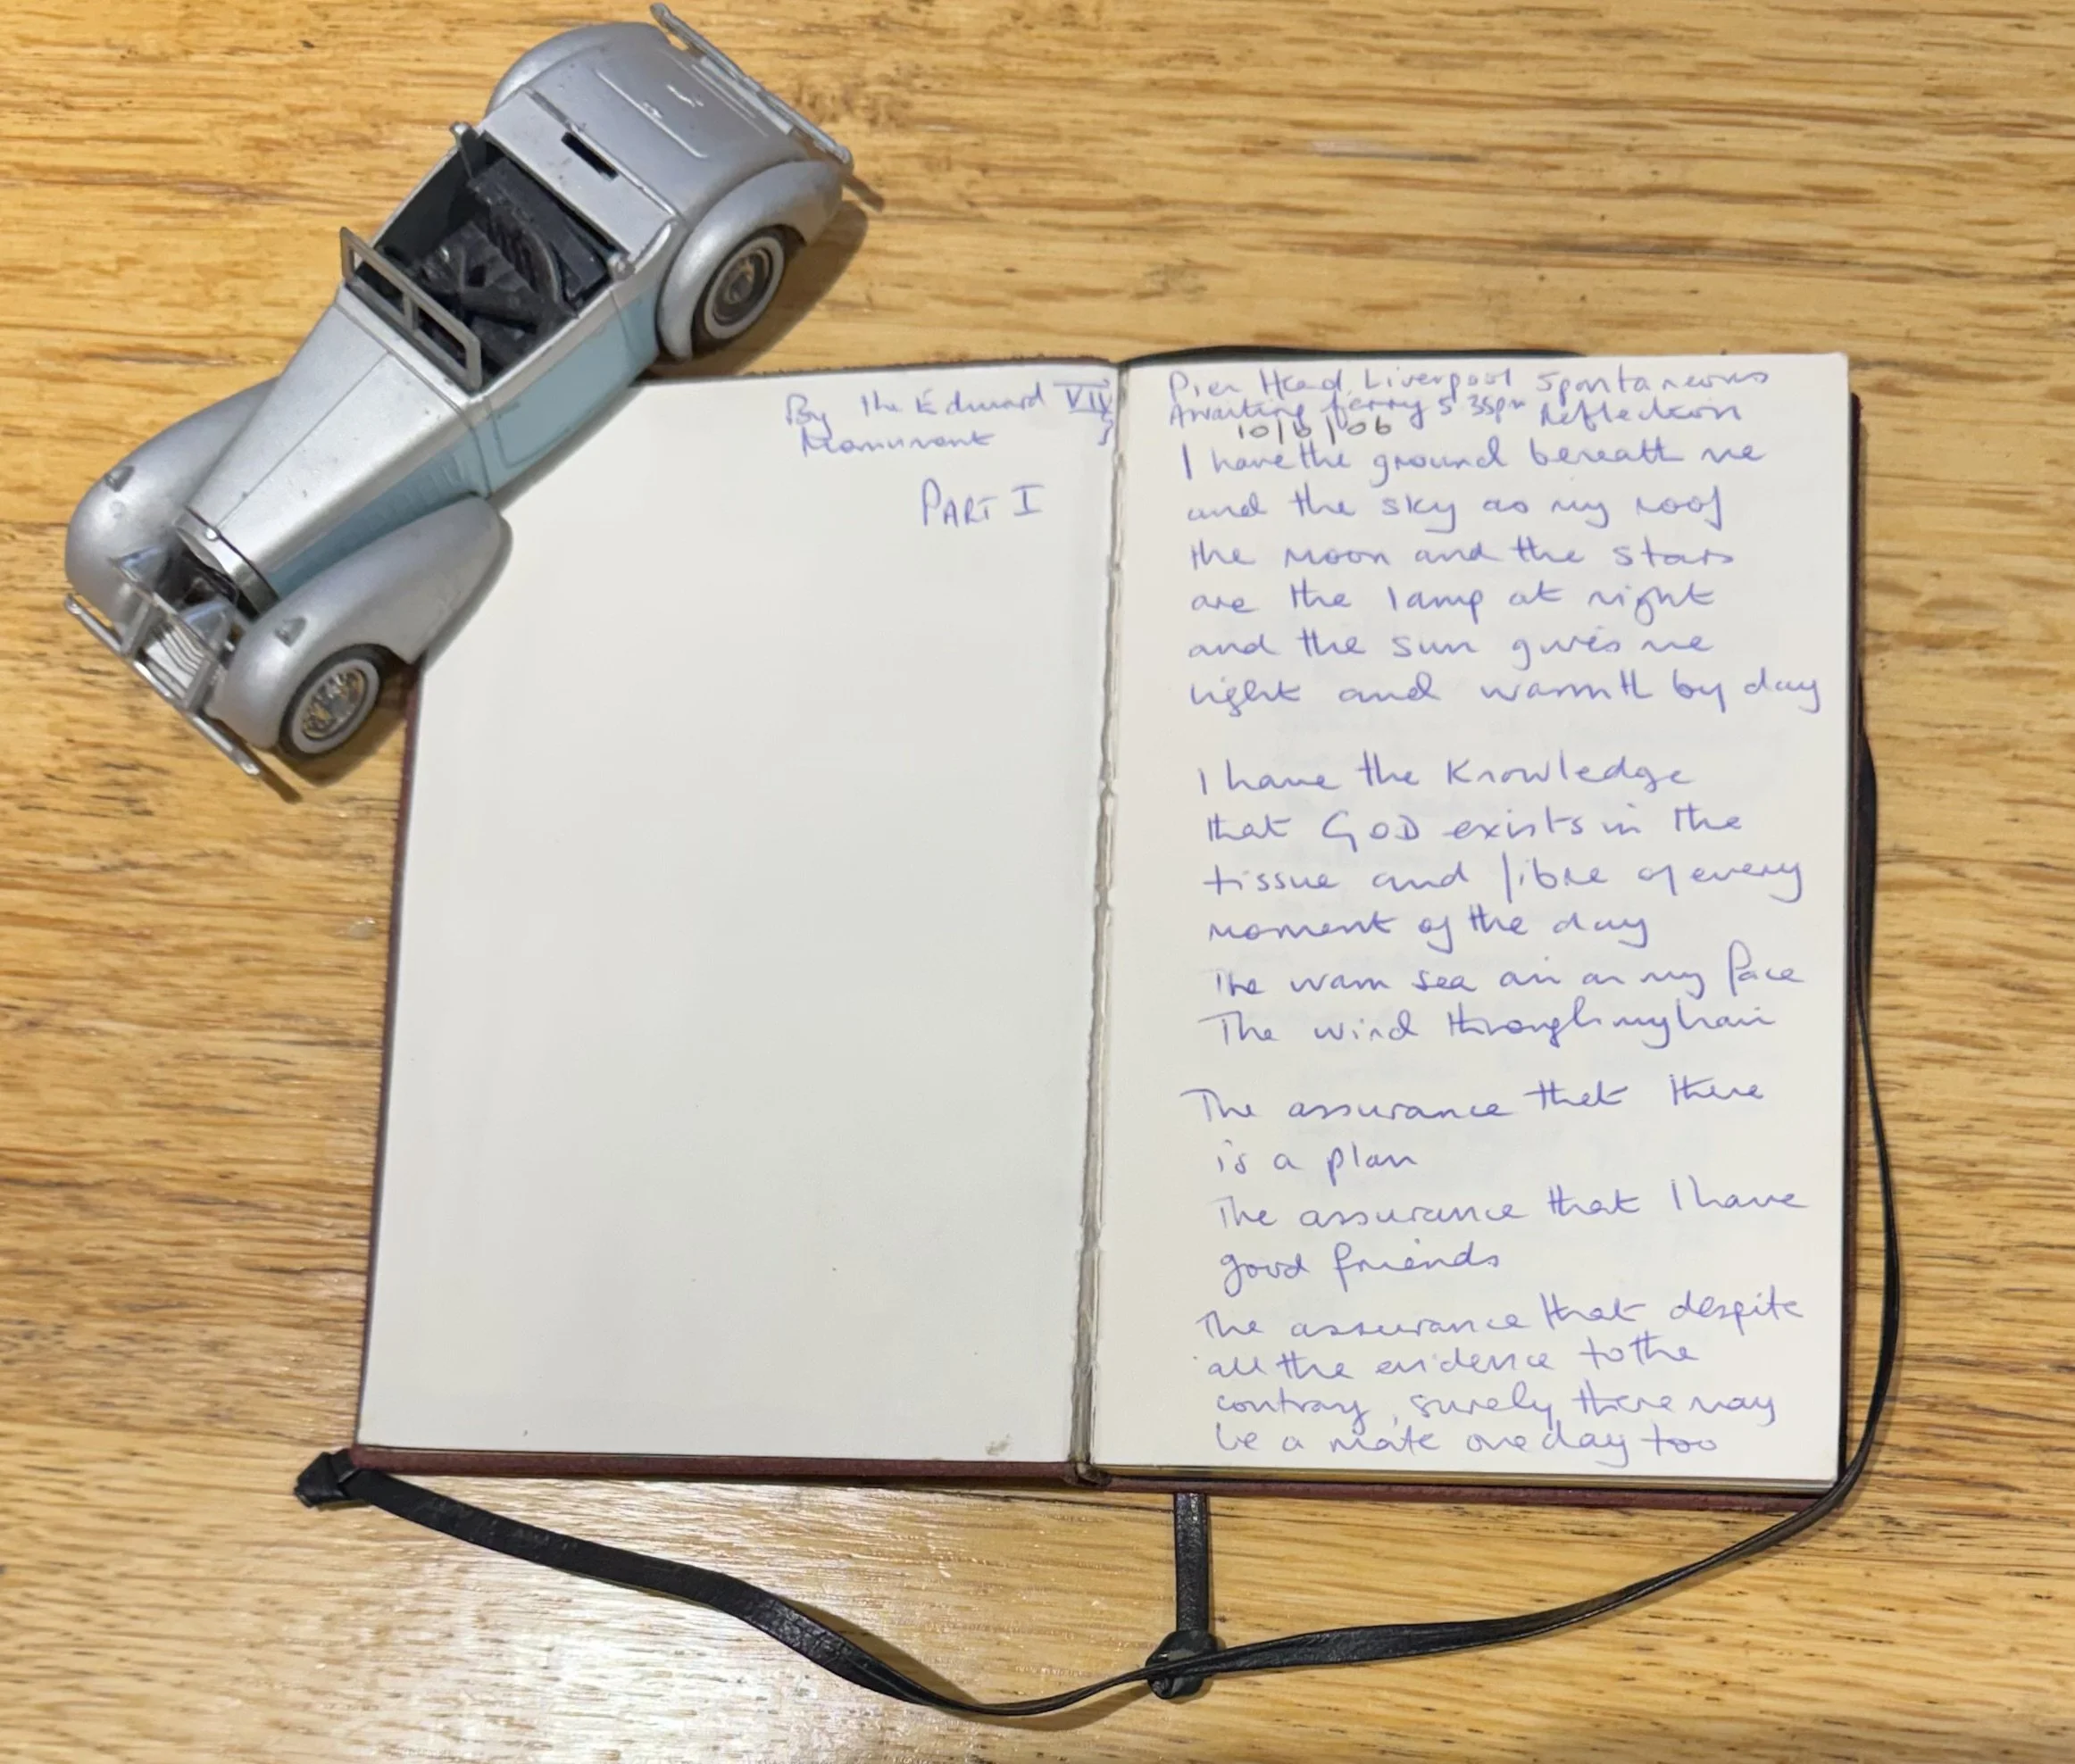 By the Edward VII
Monument
PART I
Pier Head, Liverpool Spontaneous
Awaiting ferry 5 35pm Reflection
10/6/06
I have the ground beneath me
and the sky as my roof
the moon and the stars
are the lamp at night
and the sun gives me
light and warmth by day
I have the Knowledge
that GOD exists in the
tissue and fibre of every
moment of the day
The warm sea air on my face
The wind through my hair
The assurance that there
is a plan
The assurance that I have
good friends
The assurance that despite
all the evidence to the
contray, surely there may
be a mate one day too